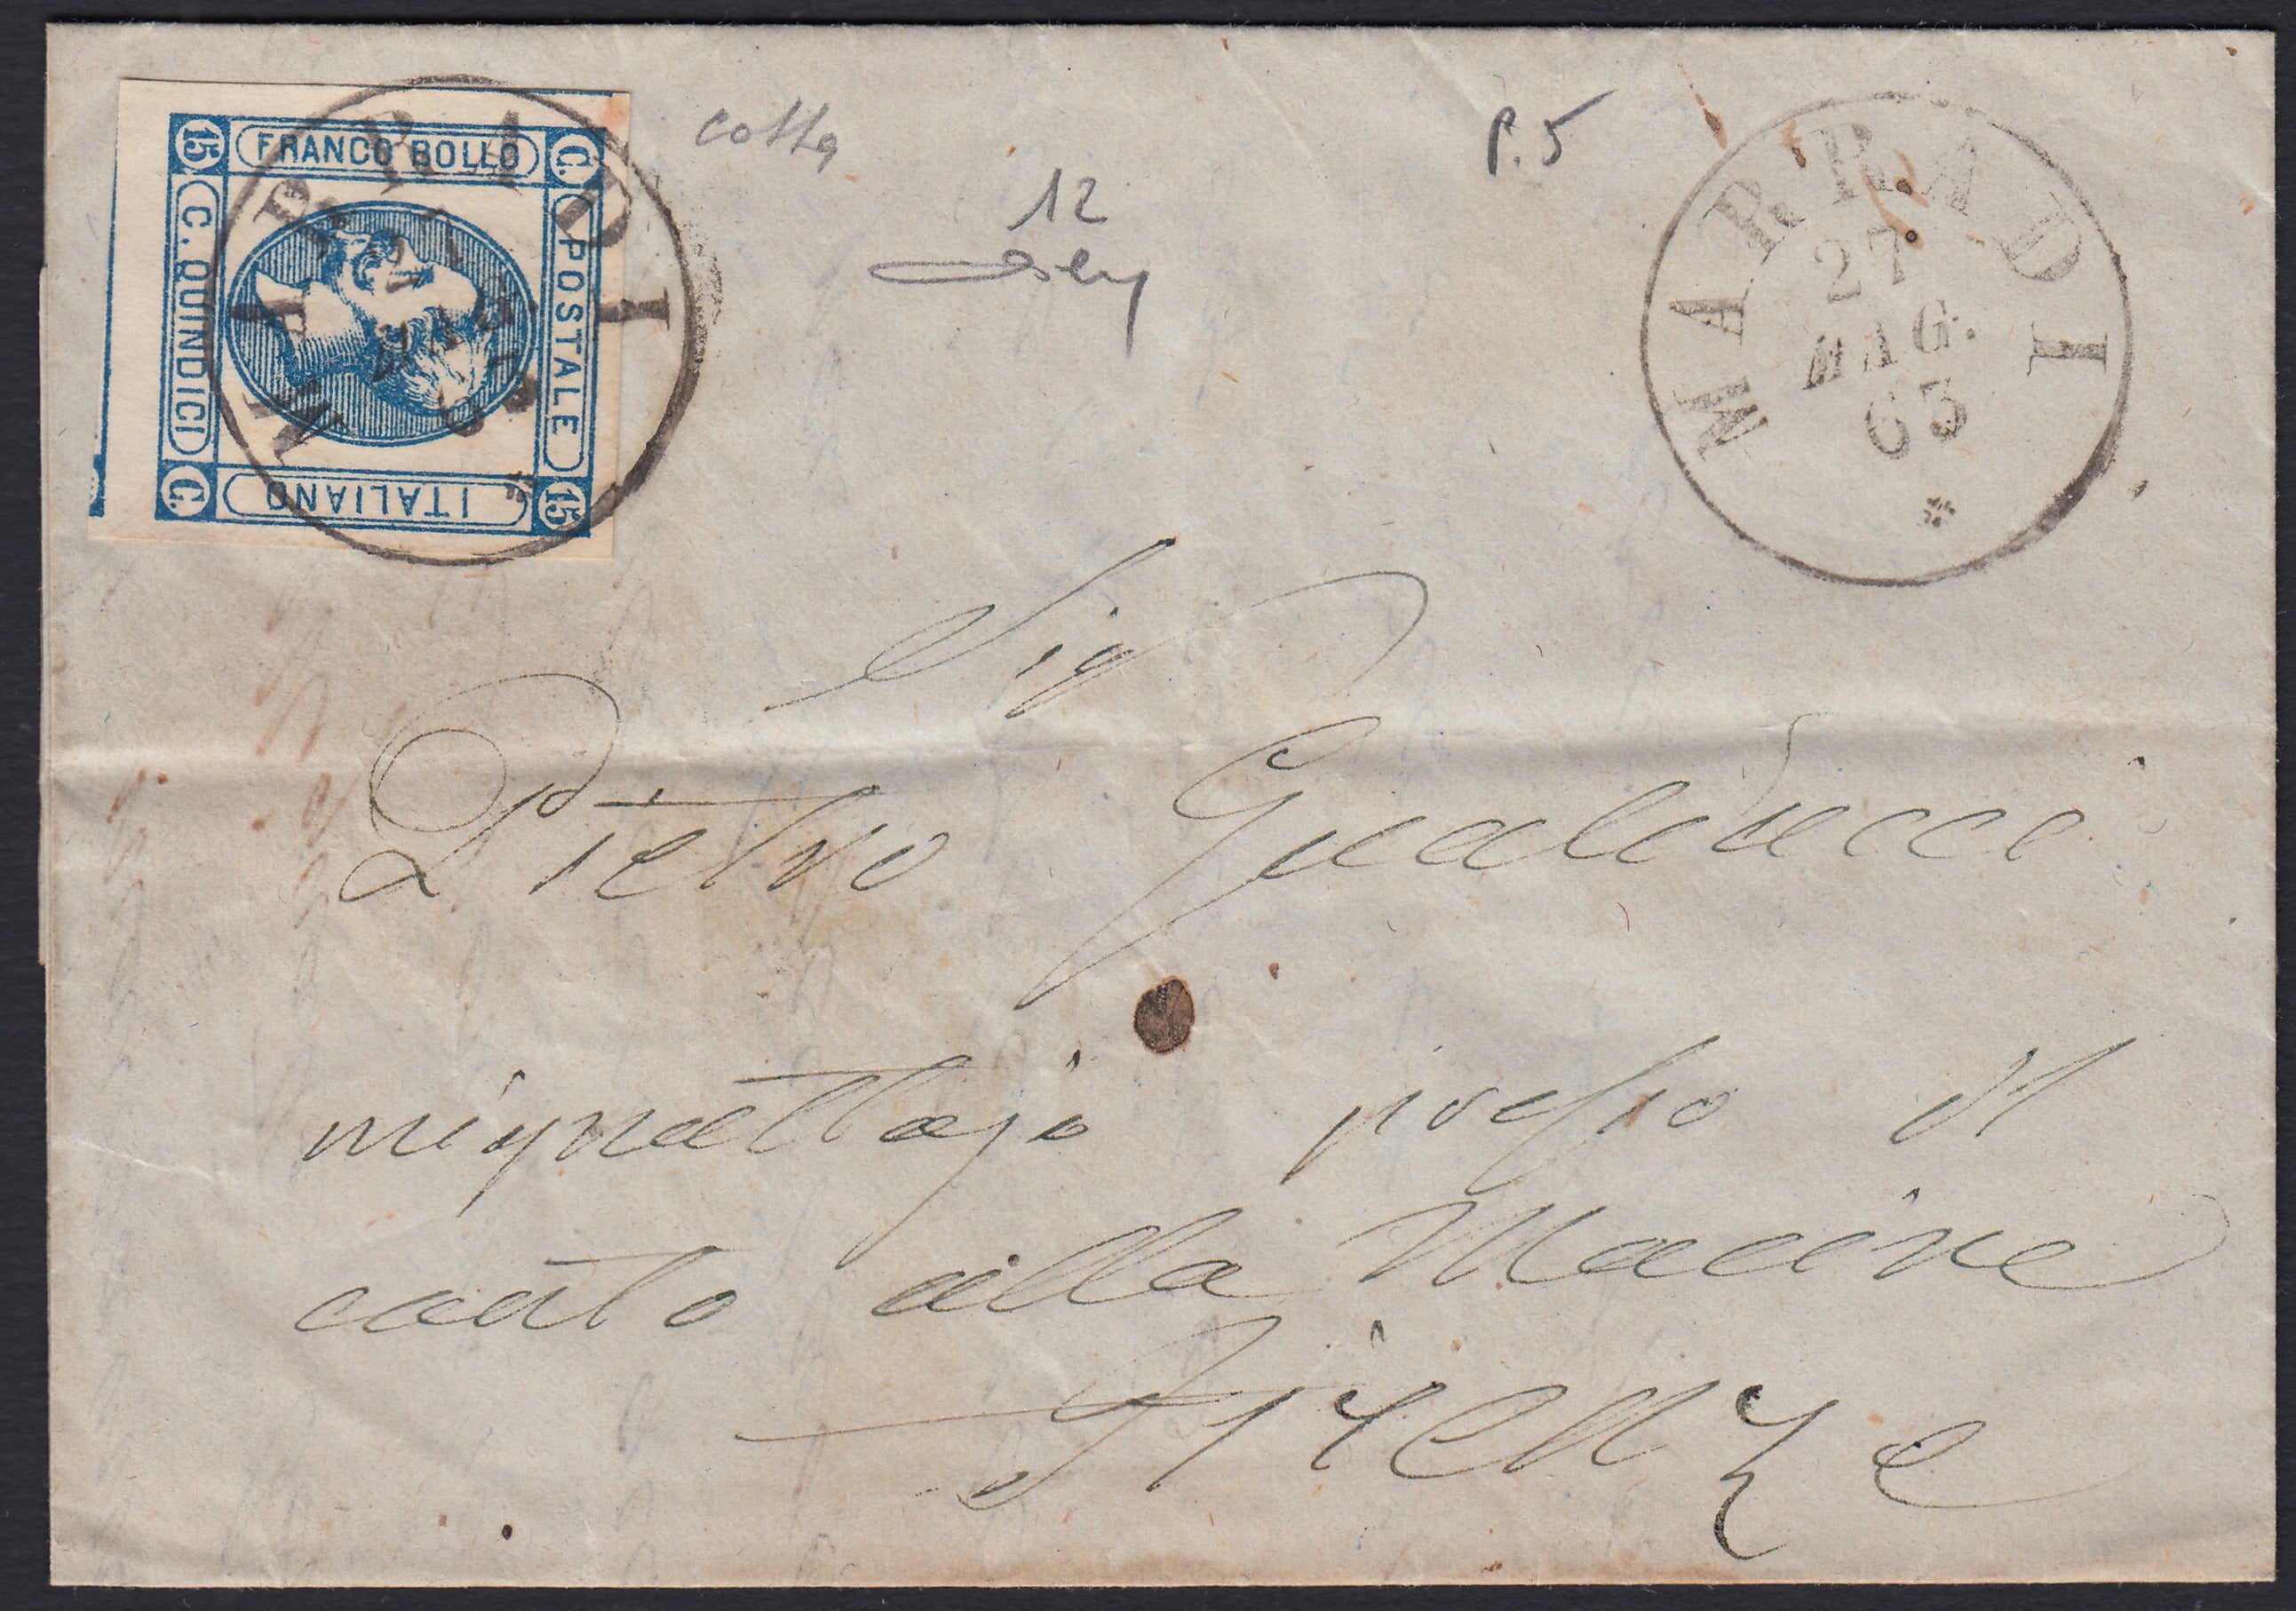 15 FRANCO BOLLO C.
C. QUINDICI
POSTALE
C. ITALIANO 15
MARRADI
27
MAG.
63
cotta
12
P.5
MARRADI
27
MAG.
63
Sig
Pietro Gualducci
mignattajo presso il
canto alla Macine
Firenze